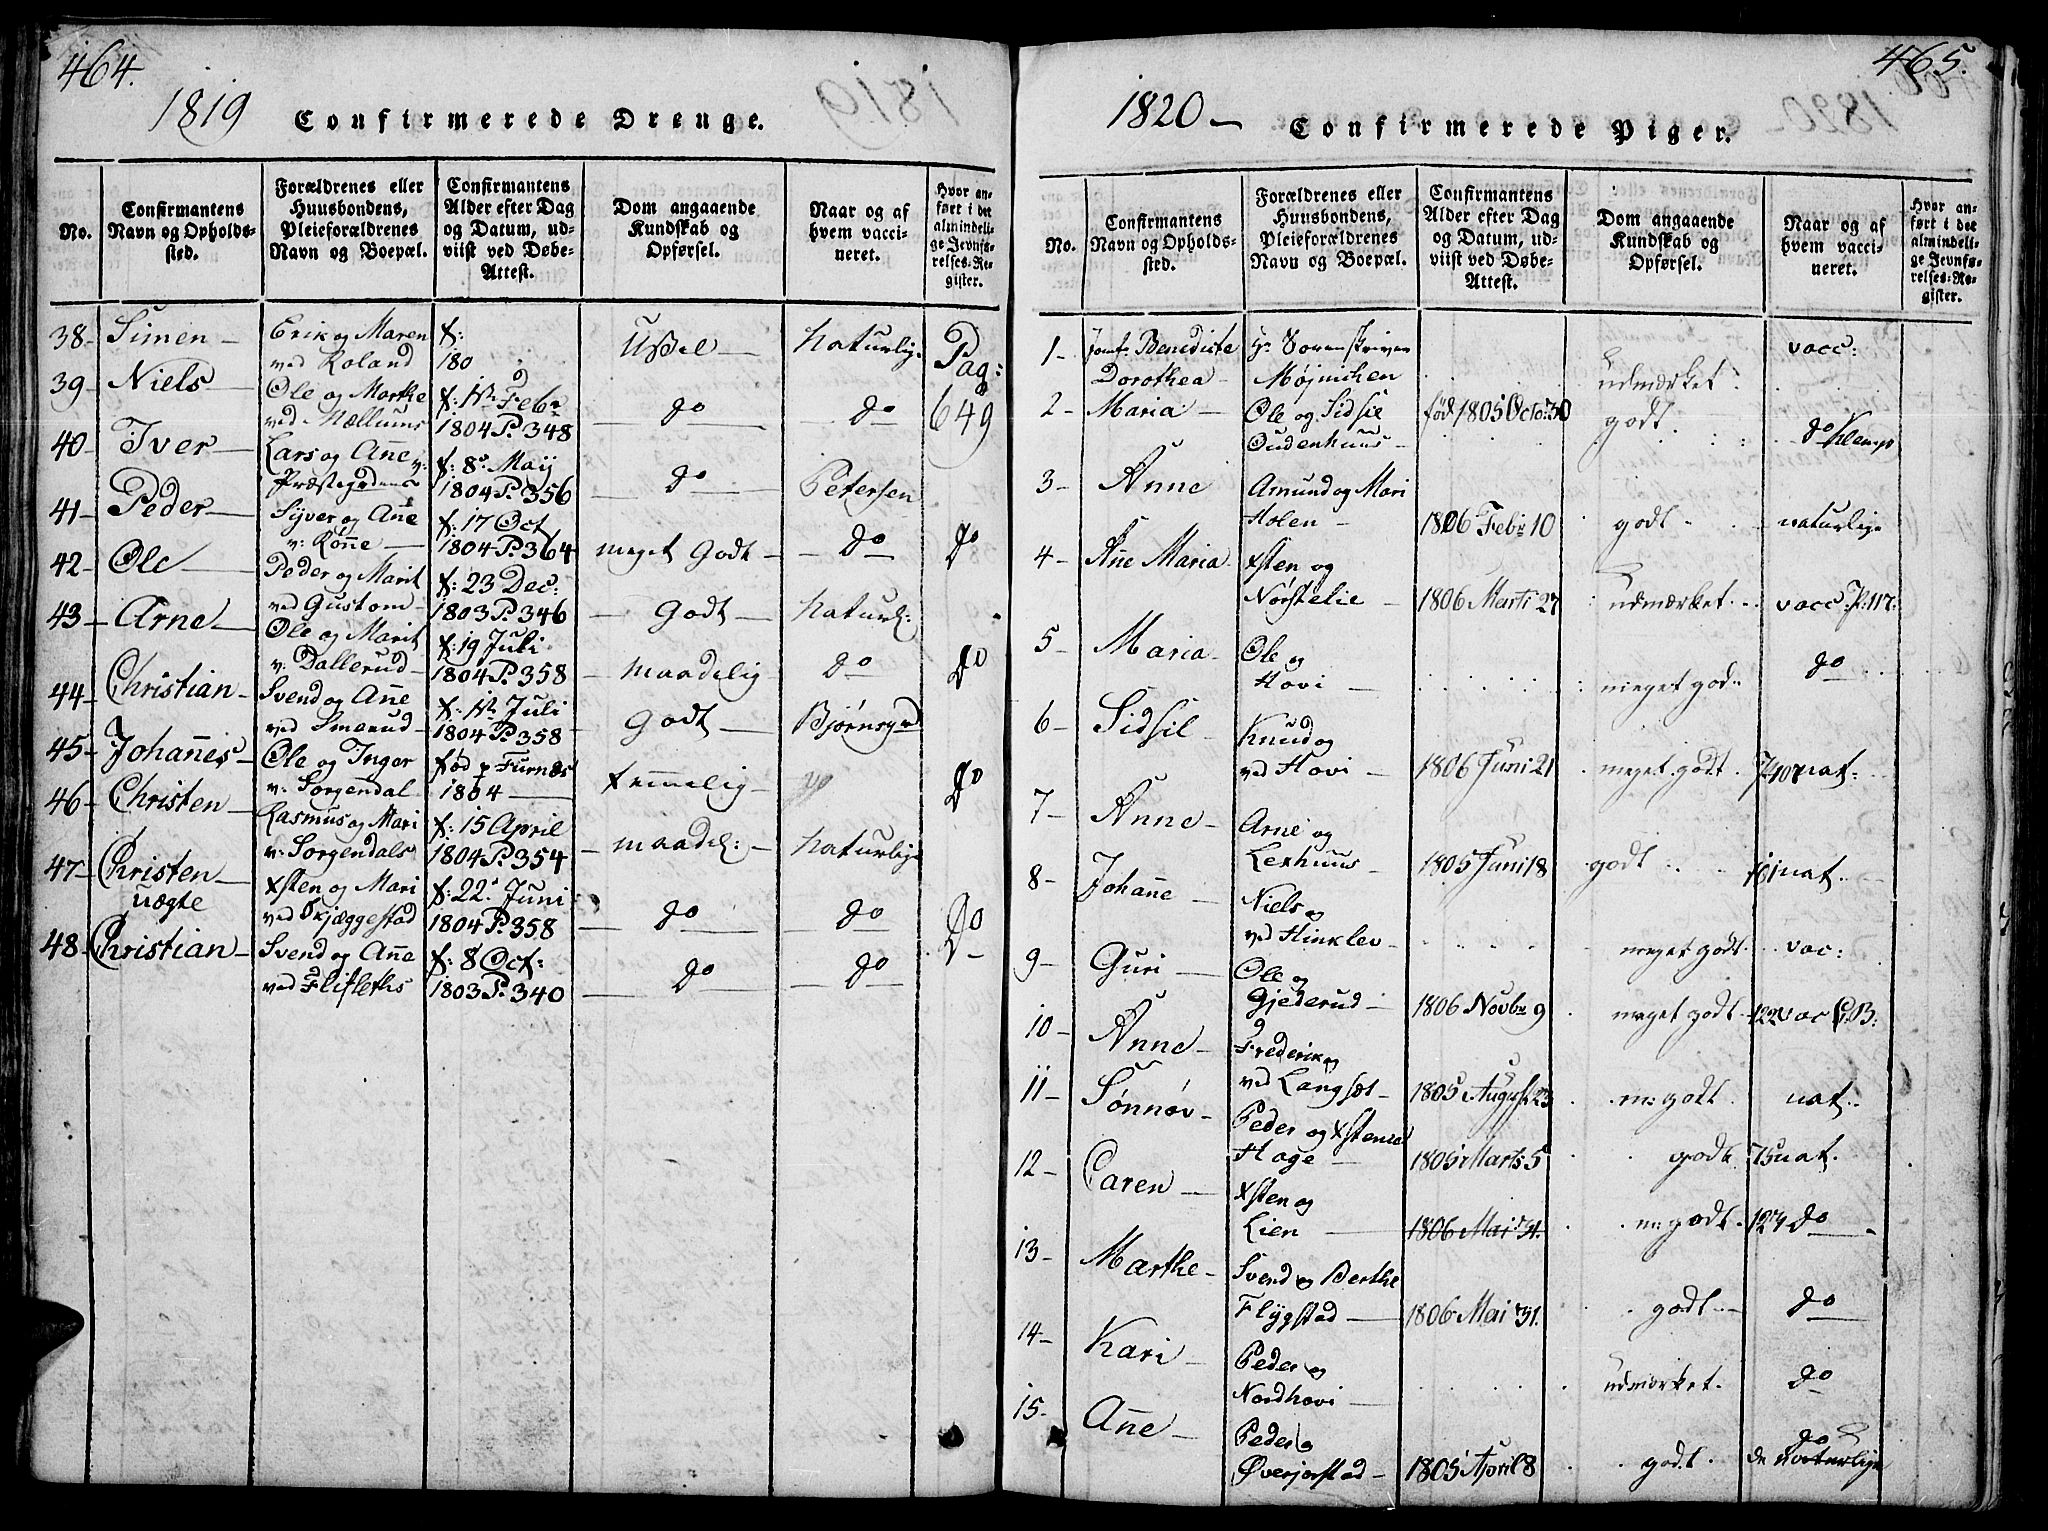 464.
1819 Confirmerede Drenge.
No.
Confirmantens Navn og Opholds-sted.
Forældrenes eller Huusbondens, Pleieforældrenes Navn og Boepæl.
Confirmantens Alder efter Dag og Datum, ud-viist ved Døbe-Attest.
Dom angaaende Kundskab og Opførsel.
Naar og af hvem vacci-neret.
Hvor an-ført i det almindeli-ge Jevnfø-relses-Re-gister.
38- Simen — Erik og Maren ved Roland f: 180 Ussel — Naturlig. Pag: 649
39- Niels — Ole og Marthe ved Mællums f: 1ste Febr 1804 P. 348 — do — do
40- Iver — Lars og Añe v: Præstegdens f: 8de Maij 1804 P. 356 — do — Petersen
41- Peder — Syver og Añe v: Røñe — f: 17 Oct 1804 P. 364 meget Godt — do do
42- Ole — Peder og Marit ved Gustom — f: 23 Dec: 1803 P. 346 — Godt — Naturl:
43- Arne — Ole og Marit v: Dallerud — f: 19 Juli 1804 P. 358 — maadelig do do
44- Christian — Svend og Añe ved Smerud — f: 1ste Juli 1804 P. 358 — Godt — Bjørnsgrd
45- Johañes — Ole og Inger v: Sorgendal fød p Furnæs 1804 — temmelig — do do
46- Christen — Rasmus og Mari v: Sorgendals f: 15 April 1804 P. 354 — maadel: — Naturlig
47- Christen uægte Xsten og Mari ved Skjæggestad f: 22. Juni 1804 P. 358 — do — do do
48- Christian — Svend og Añe ved Flifleths f: 8 Oct: 1803 P. 340 — do — do
465.
1820 — Confirmerede Piger.
No.
Confirmantens Navn og Opholds-sted.
Forældrenes eller Huusbondens, Pleieforældrenes Navn og Boepæl.
Confirmantens Alder efter Dag og Datum, ud-viist ved Døbe-Attest.
Dom angaaende Kundskab og Opførsel.
Naar og af hvem vacci-neret.
Hvor an-ført i det almindeli-ge Jevnfø-relses-Re-gister.
1- Jomf. Benedicte Dorothea — Hr Sorenskriver Møjnichen udmærket. vacc:
2- Maria — Ole og Sidsil Oudenhuus — født 1805 Octo: 30 godt. do Klemp
3- Anne Amund og Mari Holen — 1806 Febr 10 godt. naturlige
4- Añe Maria Xsten og Nørstelie — 1806 Marti 27 udmærket. vacc: P: 117:
5- Maria — Ole og Hovi — meget godt do
6- Sidsil — Knud og ved Hovi — 1806 Juni 21 meget godt. P. 107 nat:
7- Anne — Arne og Lexhuus — 1805 Juni 18 godt. 101 nat.
8- Johañe Niels og ved Hinklev — meget godt. vac:
9- Guri — Ole og Gjederud — 1806 Novbr 9 meget godt.
10- Anne — Frederik og ved Langsæt — 1805 August 23 m: godt. nat.
11- Sønnøv — Peder og Hage — 1805 Marts 5 godt. 75 nat.
12- Caren — Xsten og Lien — 1806 Mai 31. m: godt. do
13- Marthe — Svend og Berthe Flygstad — 1806 Mai 31. godt — do
14- Kari — Peder og Nordhovi — udmærket. do
15- Añe — Peder og Øverjorstad — 1805 April 8 godt. do naturlige